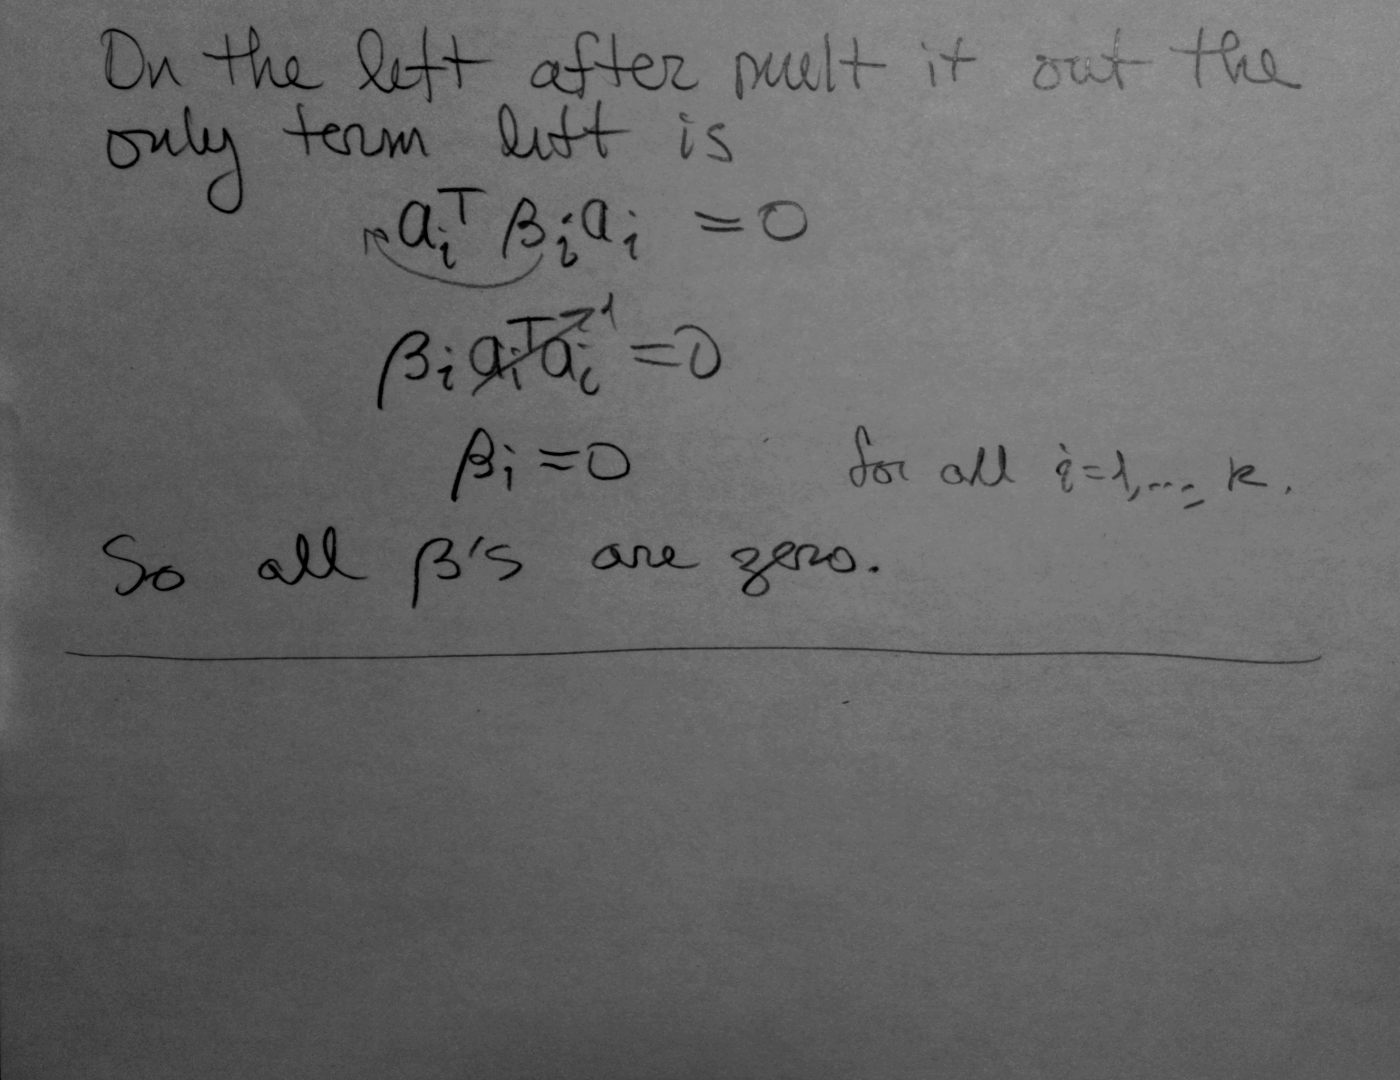 On the left after mult it out the
only term left is
aᵢᵀ βᵢ aᵢ = 0
βᵢ aᵢᵀ aᵢ ↗1 = 0
βᵢ = 0 for all i=1,..., k.
So all β's are zero.